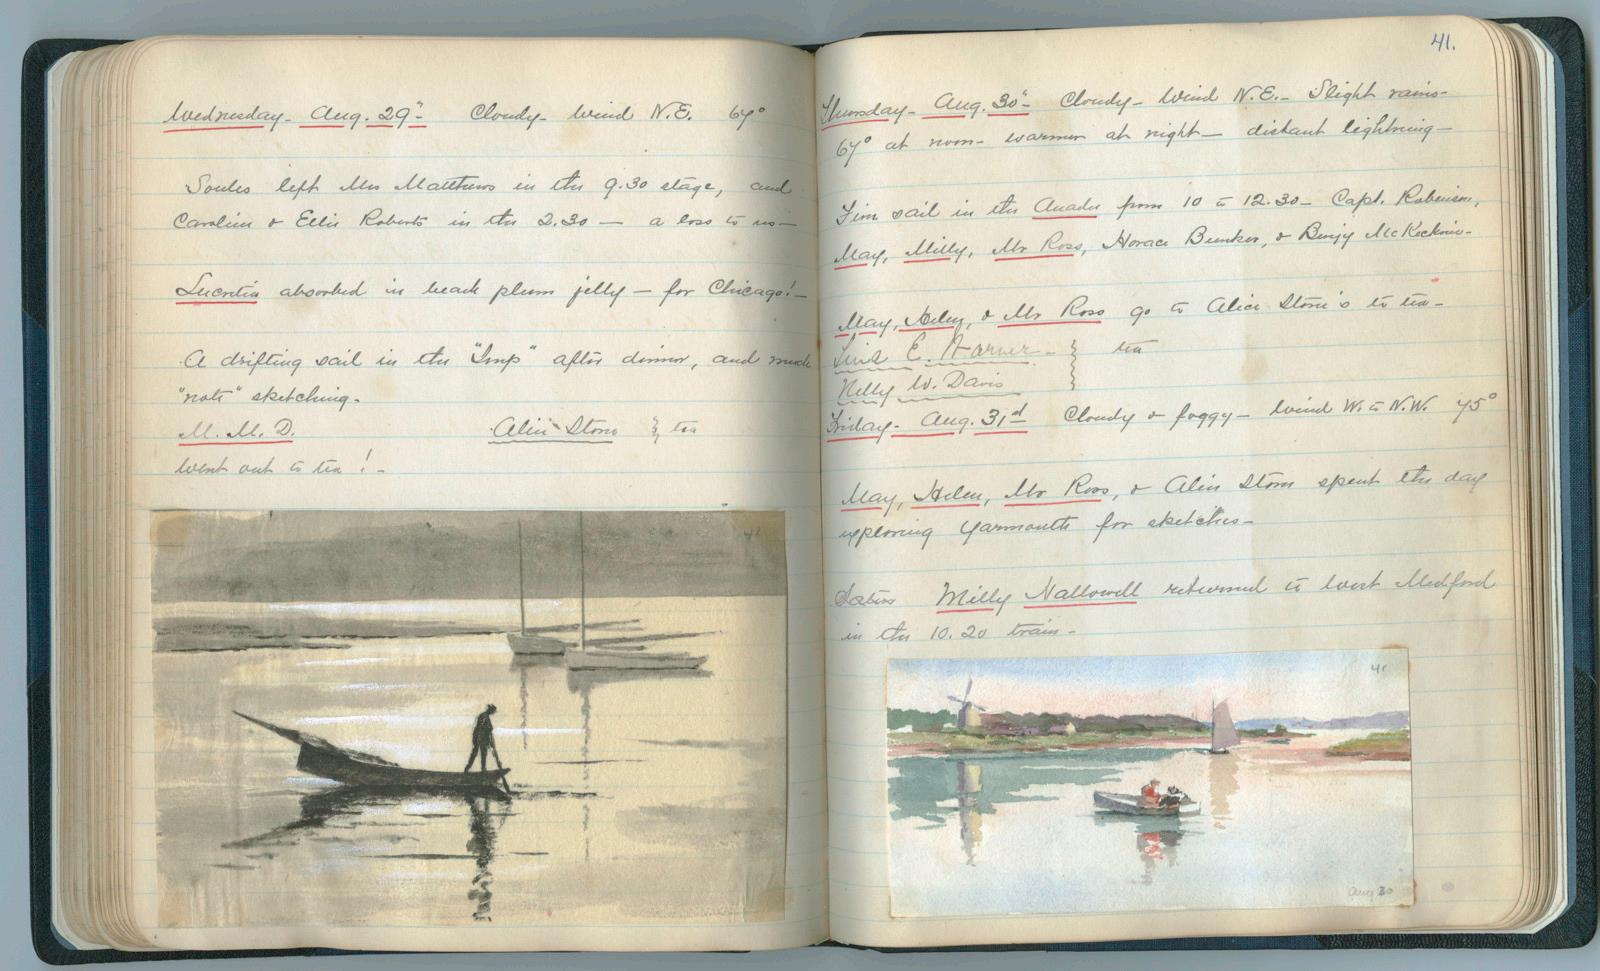 Wednesday - Aug. 29" - Cloudy - Wind N.E. 67°
Soules left Mrs Matthews in the 9.30 stage, and
Caroline & Ellis Roberts in the 2.30 — a loss to us —
Lucretia absorbed in beach plum jelly — for Chicago! —
A drifting sail in the "Imp" after dinner, and much
"note" sketching.
M. M. D. Alice Stone } tea
Went out to tea! -
41
41.
Thursday - Aug. 30" - Cloudy - Wind N.E. - Slight rains -
67° at noon - warmer at night — distant lightning —
Fine sail in the from 10 to 12.30 - Capt. Robinson,
May, Milly, Mr Ross, Horace Bunker, & Benjy
May, Helen, & Mr Ross go to Alice Stone's to tea -
E. Warner - } tea
Nelly W. Davis
Friday - Aug. 31st Cloudy & foggy - Wind W. to N.W. 75°
May, Helen, Mr Ross, & Alice Stone spent the day
exploring Yarmouth for sketches -
Milly Hallowell returned to West Medford
in the 10.20 train -
41
Aug 30